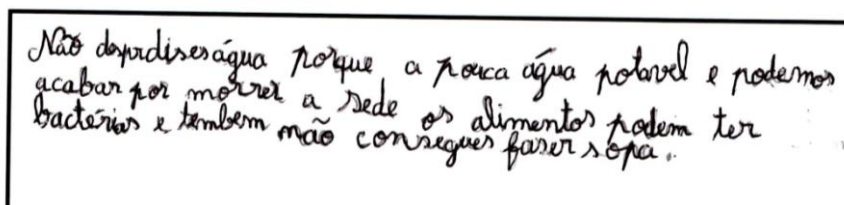 Não desprdises água porque a pouca água potavel e podemos
acabar por morrer a sede os alimentos podem ter
bactérias e tembem não consegues faser sopa.